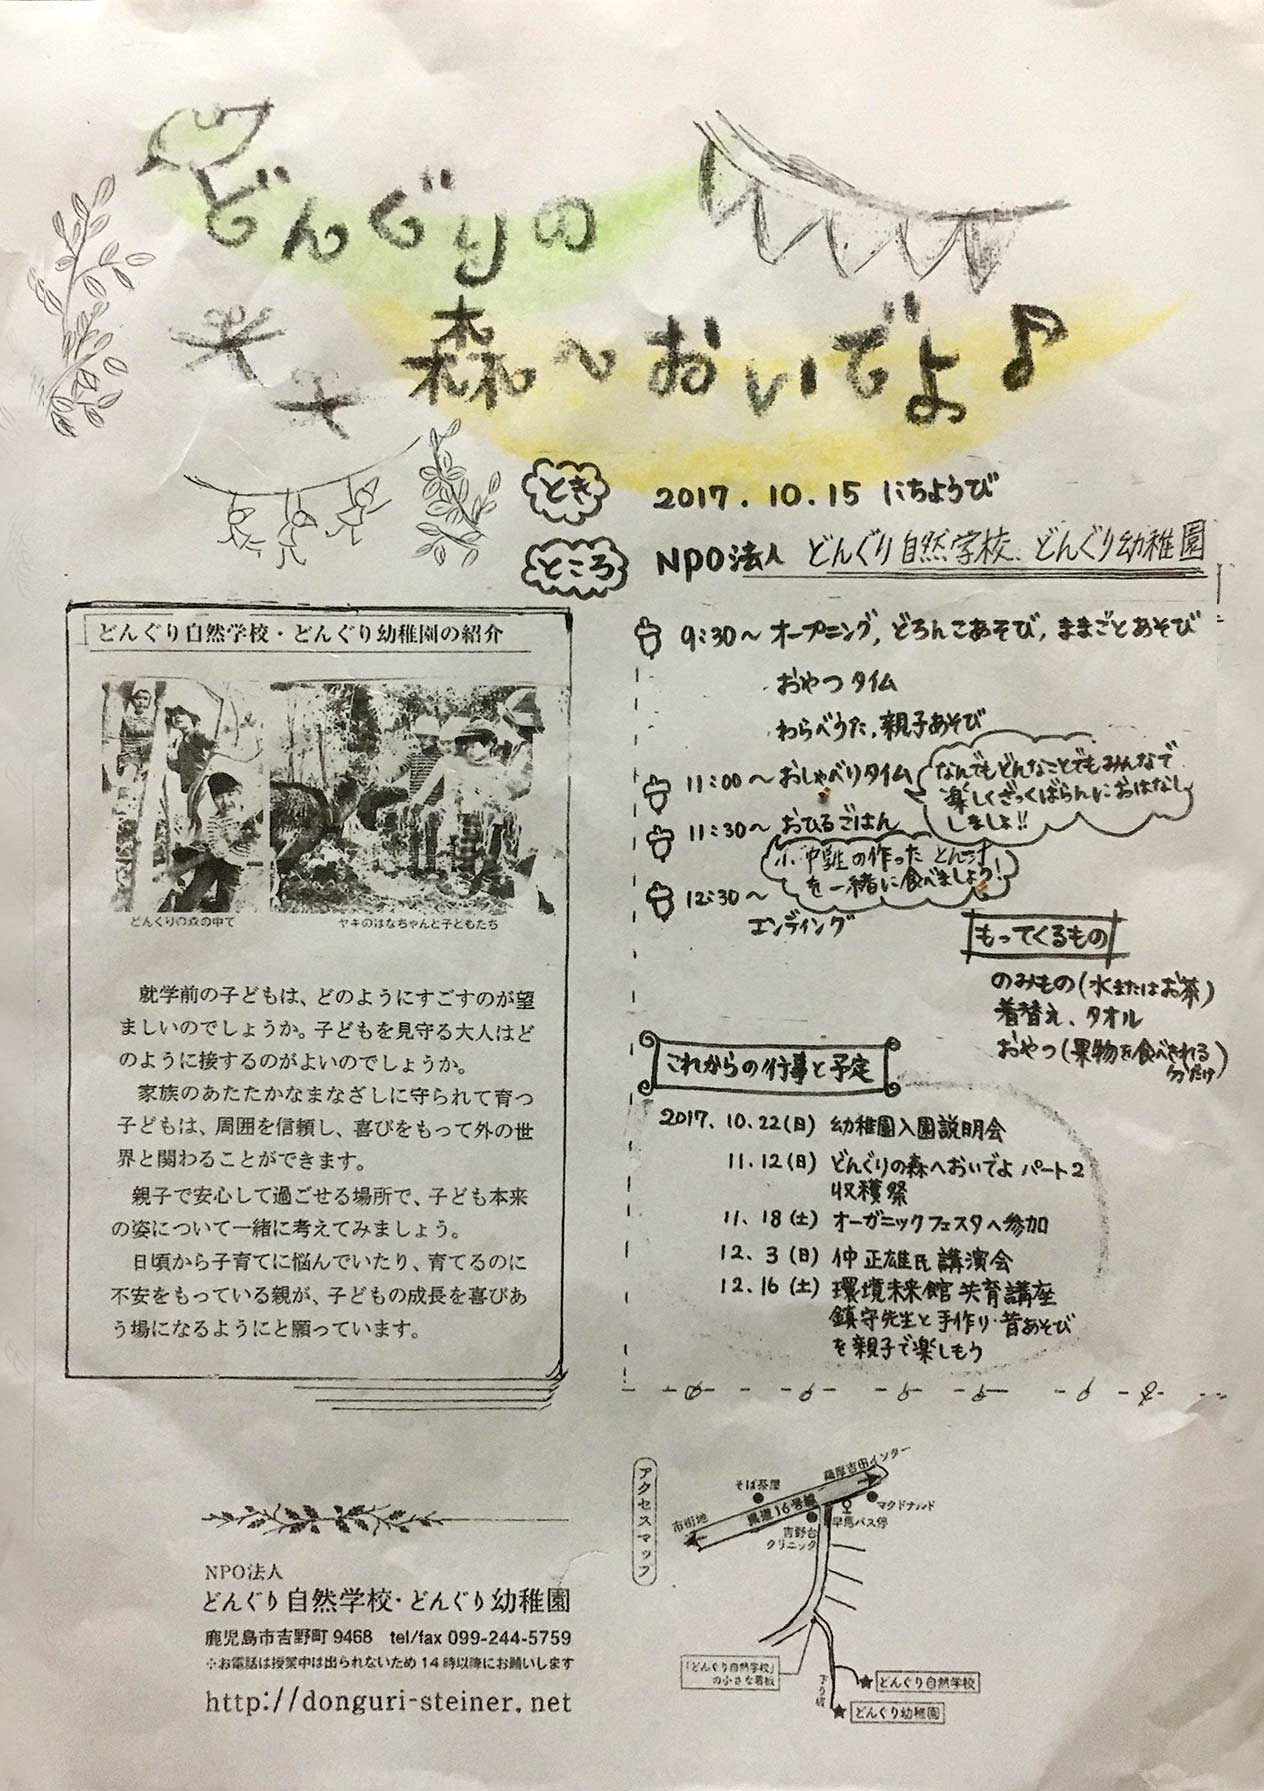 どんぐりの
森へおいでよ♪
とき 2017.10.15 にちようび
ところ NPO法人 どんぐり自然学校、どんぐり幼稚園
どんぐり自然学校・どんぐり幼稚園の紹介
どんぐりの森の中で
ヤギのはなちゃんと子どもたち
就学前の子どもは、どのようにすごすのが望
ましいのでしょうか。子どもを見守る大人はど
のように接するのがよいのでしょうか。
家族のあたたかなまなざしに守られて育つ
子どもは、周囲を信頼し、喜びをもって外の世
界と関わることができます。
親子で安心して過ごせる場所で、子ども本来
の姿について一緒に考えてみましょう。
日頃から子育てに悩んでいたり、育てるのに
不安をもっている親が、子どもの成長を喜びあ
う場になるようにと願っています。
9:30〜 オープニング, どろんこあそび, ままごとあそび
おやつタイム
わらべうた、親子あそび
11:00〜 おしゃべりタイム
なんでもどんなことでもみんなで
楽しくざっくばらんにおはなし
しましょ!!
11:30〜 おひるごはん
小中学生の作った とん汁
を一緒に食べましょう!
12:30〜
エンディング
もってくるもの
のみもの(水またはお茶)
着替え、タオル
おやつ(果物を食べきれる
分だけ)
これからの行事と予定
2017. 10. 22(日) 幼稚園入園説明会
11. 12(日) どんぐりの森へおいでよ パート2
収穫祭
11. 18(土) オーガニックフェスタへ参加
12. 3(日) 仲 正雄氏 講演会
12. 16(土) 環境未来館 共育講座
鎮守先生と手作り・昔あそび
を親子で楽しもう
NPO法人
どんぐり自然学校・どんぐり幼稚園
鹿児島市吉野町 9468 tel/fax 099-244-5759
※お電話は授業中は出られないため14時以降にお願いします
http://donguri-steiner.net
アクセスマップ
薩摩吉田インター
そば茶屋
マクドナルド
県道16号線
市街地
早馬バス停
吉野台
クリニック
「どんぐり自然学校」
の小さな看板
下り坂
どんぐり自然学校
どんぐり幼稚園